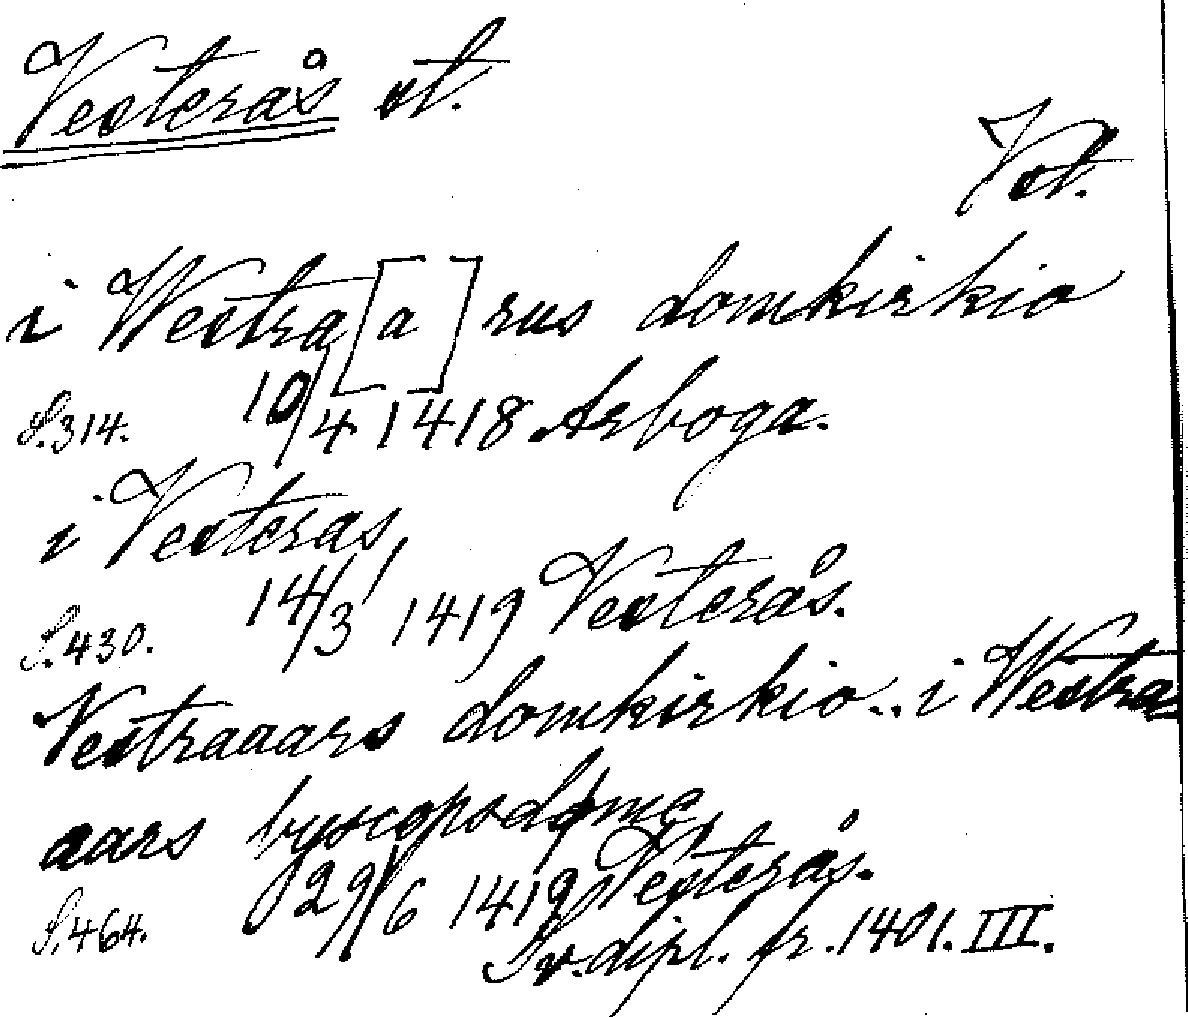 Vesterås st.
Vst.
i Westra[a]rus domkirkio
S.314. 10/4 1418 Arboga.
i Vesteras,
S.430. 14/3 1419 Vesterås.
Vestraaars domkirkio.. i Westra=
aars byscopsdøme,
S.464. 29/6 1419 Vesterås.
Sv. dipl. fr. 1401. III.